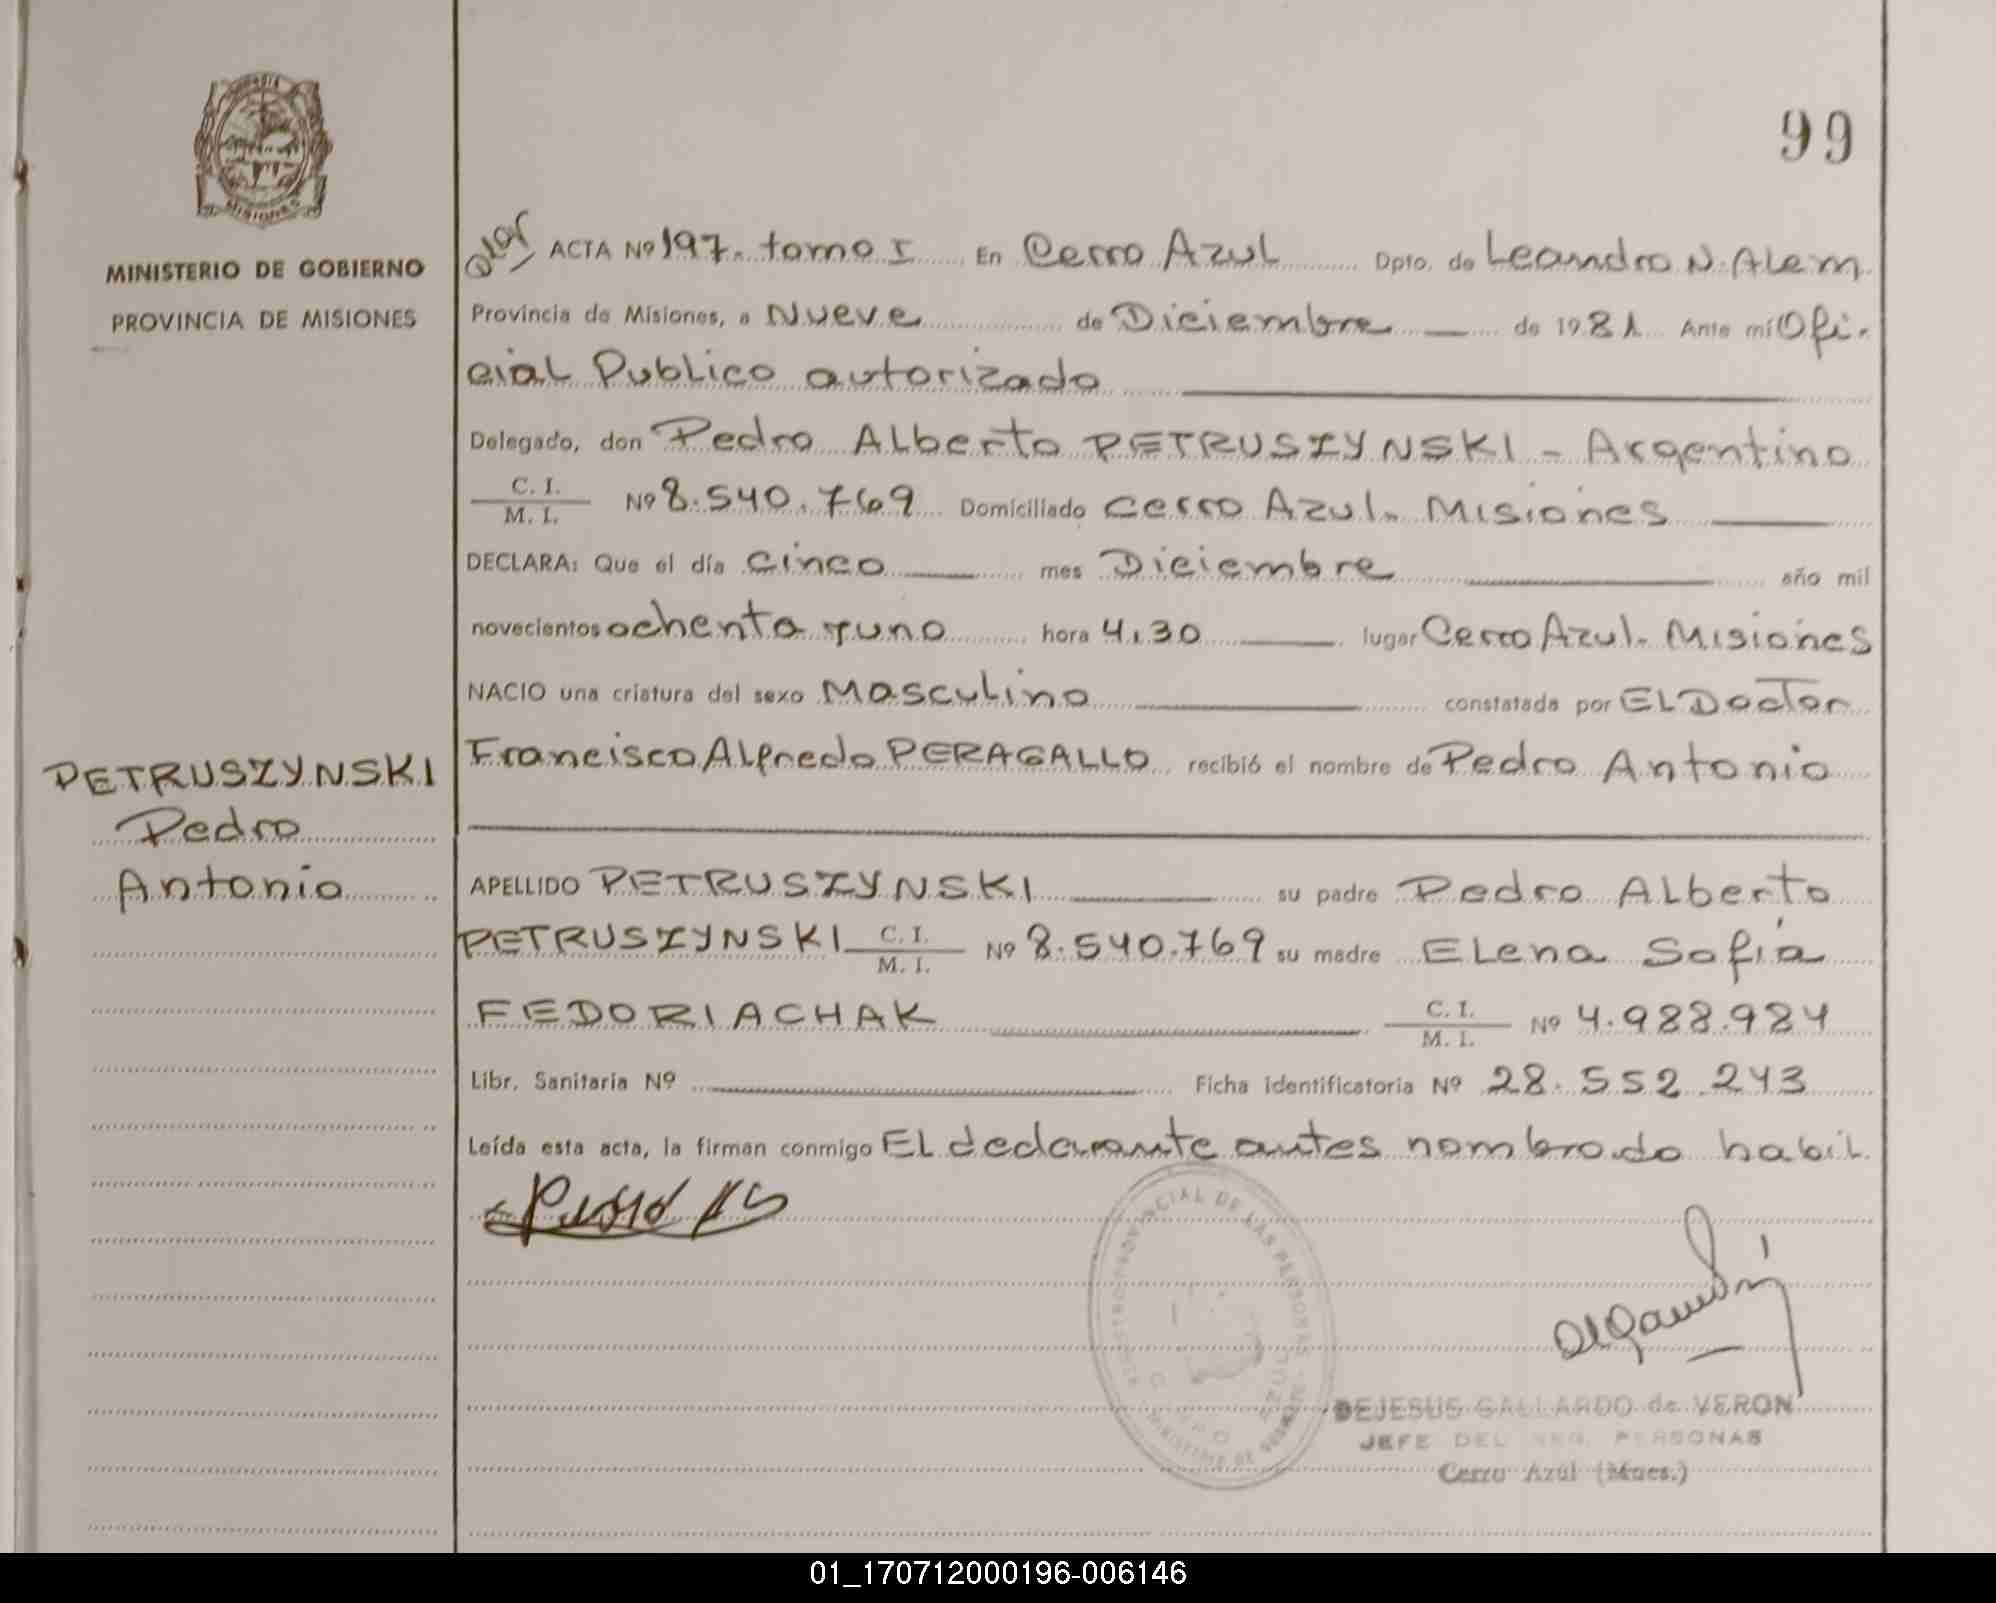 99
MISIONES
MINISTERIO DE GOBIERNO
PROVINCIA DE MISIONES
ACTA Nº 197. tomo I En Cerro Azul Dpto. de Leandro N. Alem
Provincia de Misiones, a Nueve de Diciembre de 1981 Ante mi Ofi-
cial Publico autorizado
Delegado, don Pedro Alberto PETRUSZYNSKI - Argentino
C. I.
M. I. Nº 8.540.769 Domiciliado Cerro Azul. Misiones
DECLARA: Que el día Cinco mes Diciembre año mil
novecientos ochenta y uno hora 4,30 lugar Cerro Azul. Misiones
NACIO una criatura del sexo Masculino constatada por EL Doctor
Francisco Alfredo PERAGALLO recibió el nombre de Pedro Antonio
PETRUSZYNSKI
Pedro
Antonio
APELLIDO PETRUSZYNSKI su padre Pedro Alberto
PETRUSZYNSKI C. I.
M. I. Nº 8.540.769 su madre Elena Sofía
FEDORIACHAK C. I.
M. I. Nº 4.988.984
Libr. Sanitaria Nº Ficha identificatoria Nº 28.552.243
Leída esta acta, la firman conmigo El declarante antes nombrado habil.
REGISTRO PROVINCIAL DE LAS PERSONAS
DEJESUS GALLARDO de VERON
JEFE DEL REG. PERSONAS
Cerro Azul (Mnes.)
01_170712000196-006146